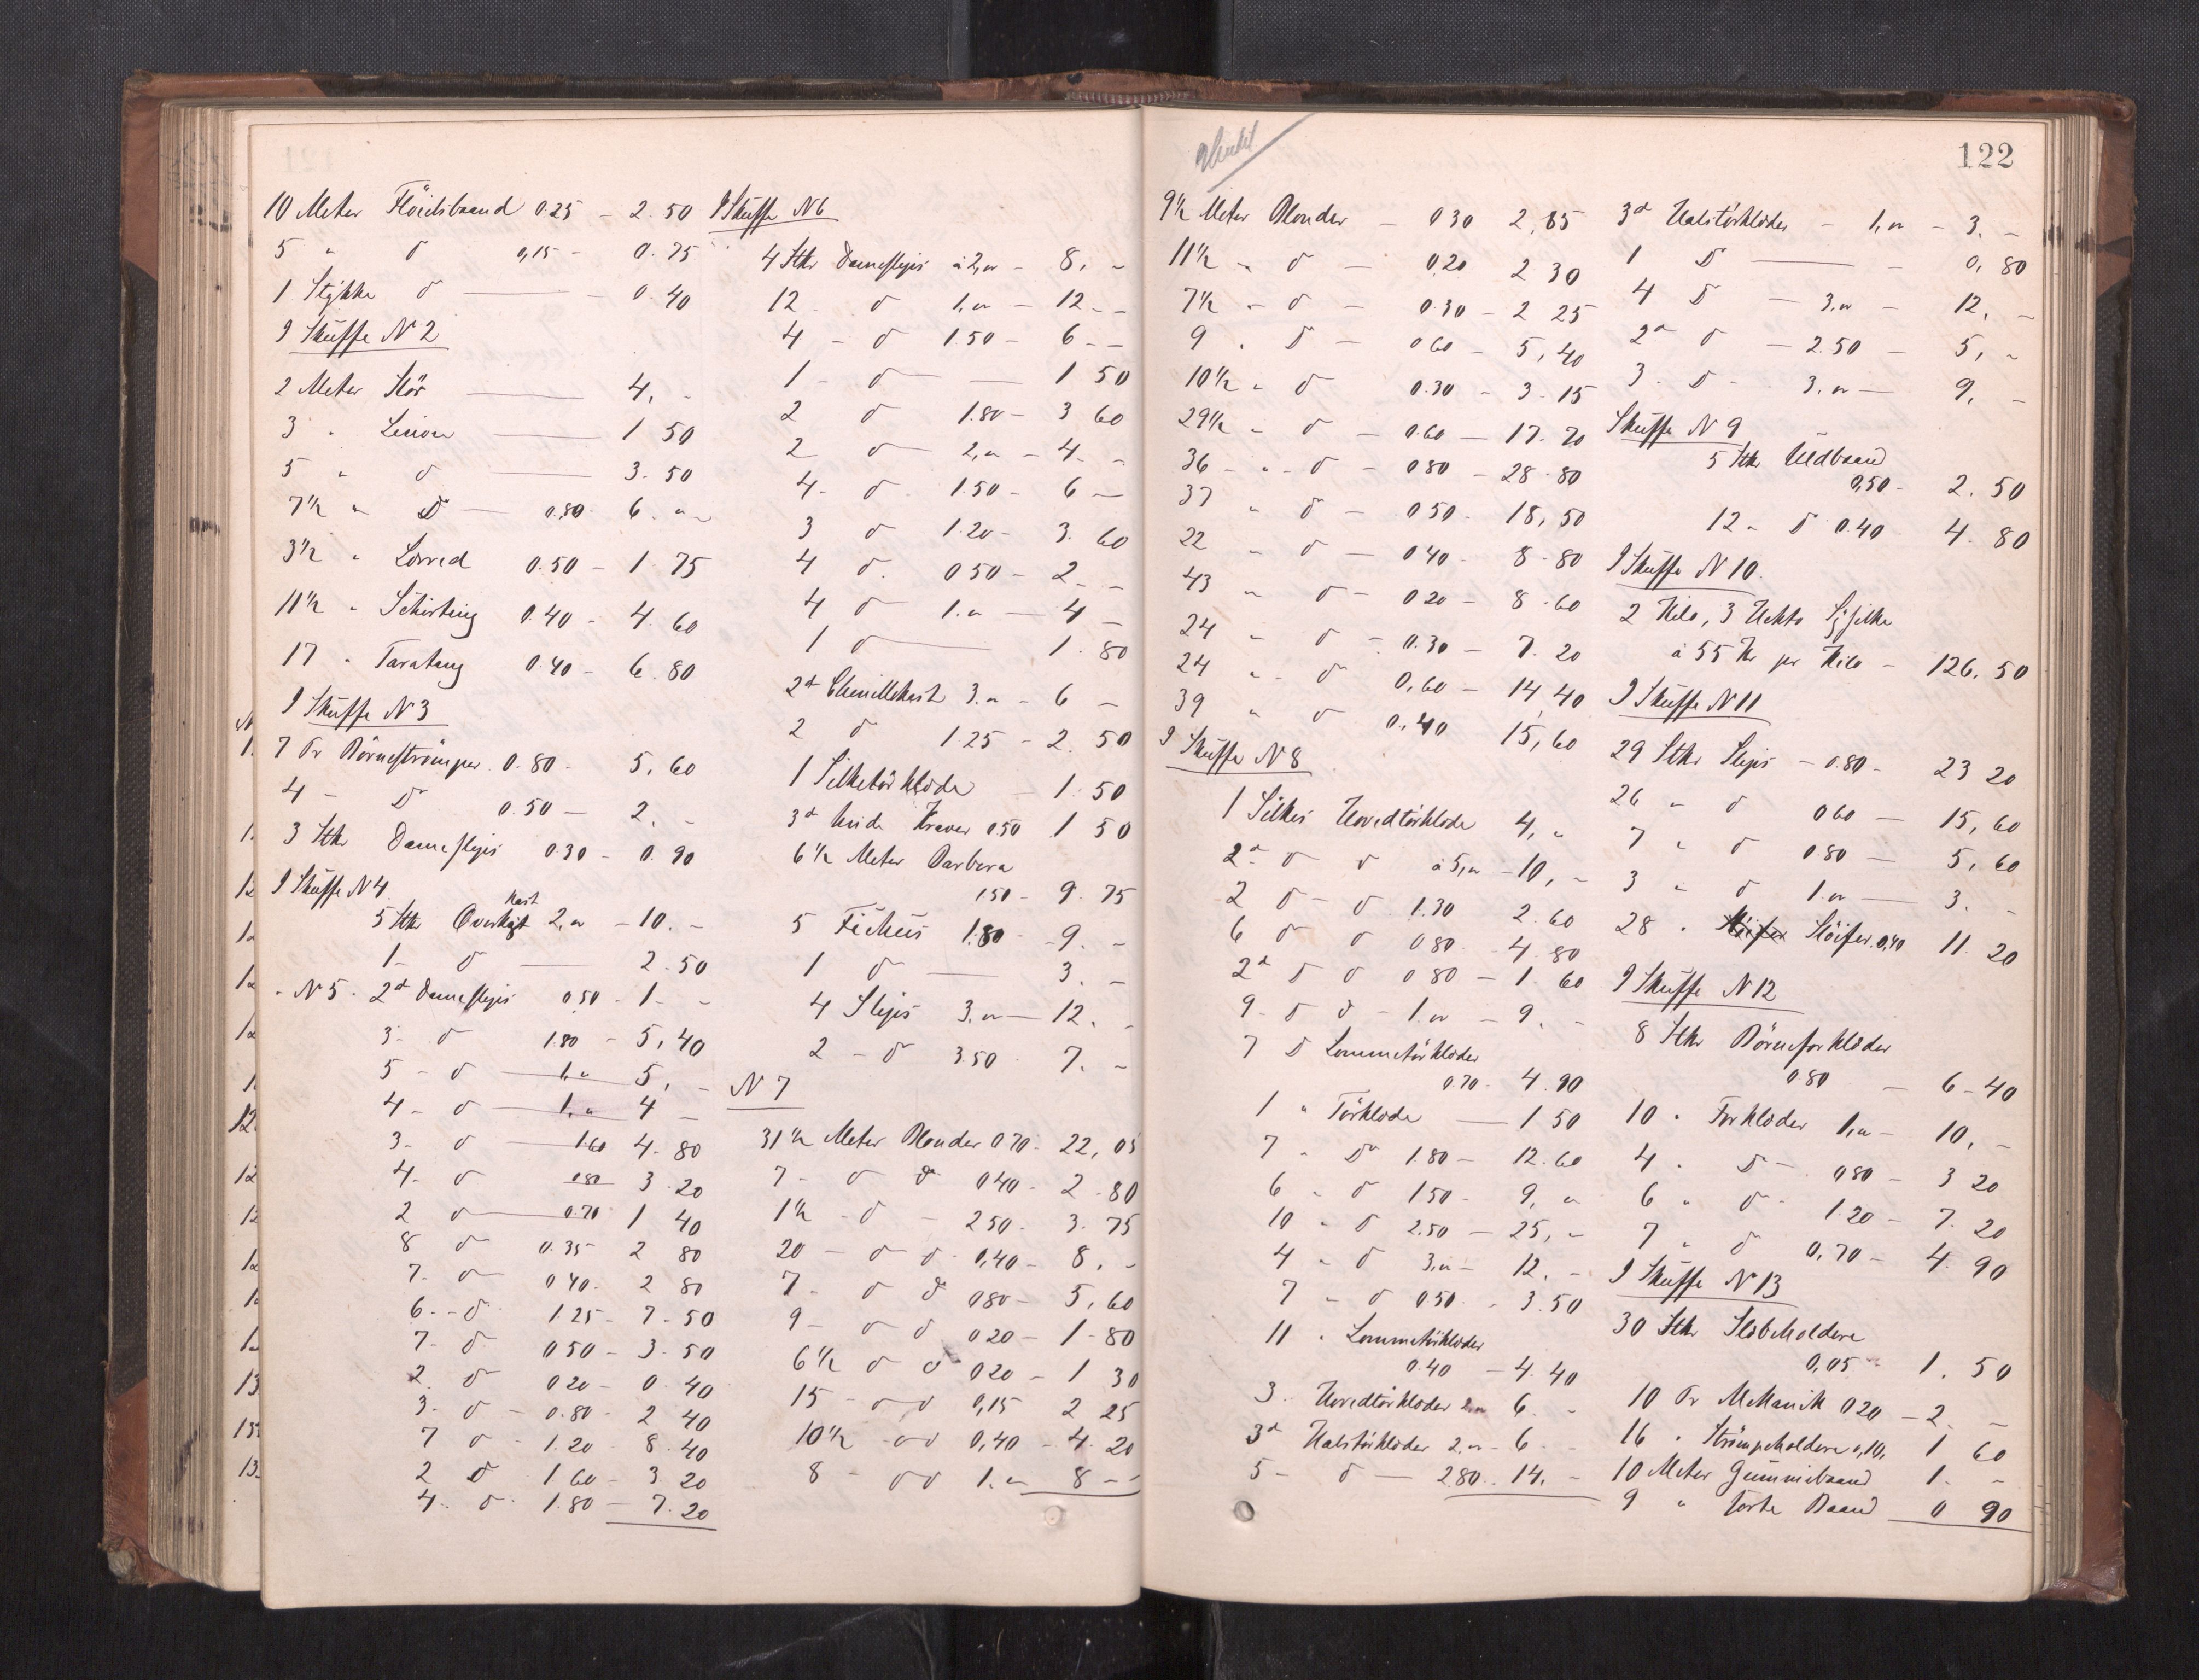 10 Meter Flöielsbaand 0.25 – 2.50
5 " d 0,15 – 0.75
1 Stykke d — 0.40
I Skuffe N 2
2 Meter Slör — 4. -
3 " Linon — 1 50
5 " d — 3.50
7½ " D — 0.80 6. " -
3½ " Lerred 0.50 – 1.75
11½ " Schirting 0.40 – 4.60
17 " Taratang 0.40 – 6.80
I Skuffe N 3
7 Pr Börneströmper 0.80 – 5,60
4 – D 0.50 – 2. -
3 Stkr Dameslips 0.30 – 0.90
I Skuffe N 4
5 Stkr Overkast 2,00 – 10. -
1 – d — 2.50
- N 5 - 2 d Dameslips 0.50 – 1 - -
3 – d 1.80 – 5,40
5 – d — 1." 5, -
4 – d — 1." 4 -
3 – d — 1.60 4.80
4 – d 0.80 3.20
2 d — 0.70 1 40
8 d 0.35 2 80
7 – d 0.40 – 2 80
6 – d 1.25 – 7.50
7 – d 0.50 – 3.50
2 d 0.20 – 0.40
3 – d – 0.80 – 2 40
7 d – 1.20 8.40
2 d 1.60 – 3.20
4 – d – 1.80 – 7.20
I Skuffe N 6
4 Stkr Dameslips à 2,00 – 8, -
12 d 1,00 – 12 - -
4 – d 1.50 – 6 - -
1 – d — 1 50
2 d 1.80 – 3 60
2 d 2,00 – 4 - -
4 – d 1.50 – 6 –
3 d 1.20 – 3.60
4 d 0.50 – 2 - -
4 d 1." — 4 -
1 d — 1.80
2 d Chenillekast 3." – 6 -
2 d 1.25 – 2.50
1 Silketörklæde – 1.50
3 d hvide Kraver 0.50 1 50
6½ Meter Barbera
1.50 – 9.75
5 Fichus 1.80 – 9. -
1 d — 3. -
4 Slips 3.00 — 12. -
2 – d 3.50 – 7. -
N 7
31½ Meter Blonder 0.70 – 22,05
7 – d d 0.40 – 2.80
1½ – d – 2.50 – 3.75
20 – d d 0,40 – 8. -
7 – d d 0.80 – 5,60
9 – d d 0.20 – 1 – 80
6½ d d 0.20 – 1 30
15 – d d 0,15 2 25
10½ d d 0,40 – 4.20
8 – d d 1." 8 - -
122
9½ Meter Blonder — 0.30 2,85
11½ " d — 0.20 2 30
7½ " d – 0.30 – 2 25
9 " D — 0.60 – 5,40
10½ " d 0.30 – 3.15
29½ " d — 0.60 – 17.70
36 " d – 0.80 – 28.80
37 " d – 0.50 – 18,50
22 " d — 0.40 – 8.80
43 " d – 0.20 – 8.60
24 " d – 0.30 – 7.20
24 " d 0,60 – 14,40
39 " d 0,40 15,60
I Skuffe N 8
1 Silkes Hovedtörklæde 4, "
2 d d d à 5,00 – 10, -
2 d – d 1.30 2.60
6 d d 0.80 – 4.80
2 d D d 0.80 – 1.60
9 – d d – 1.00 – 9. -
7 D Lommetörklæder
0.70 – 4.90
1 " Törklæde — 1 50
7 " D 1.80 – 12.60
6 " d 1.50 – 9, "
10 " d 2.50 – 25, -
4 " d 3,00 – 12. -
7 " d 0.50 – 3.50
11 " Lommetörklæder
0.40 – 4.40
3 Hovedtörklæder 2,00 6. -
3 d Halstörklæder 2,00 – 6 -
5 – d — 2.80 14. -
3 d Halstörklæder – 1,00 – 3. -
1 D — 0,80
4 D – 3,00 – 12, -
2 d d – 2.50 – 5, -
3 D – 3.00 – 9, -
Skuffe N 9
5 Stkr Uldbaand
0,50 – 2.50
12 " D 0.40 4.80
I Skuffe N 10
2 Kilo, 3 Hekto Sysilke
à 55 Kr pr Kilo – 126.50
I Skuffe N 11
29 Stkr Slips – 0.80 – 23 20
26 " d 0.60 – 15,60
7 " d 0.80 – 5,60
3 " d 1.00 — 3. -
28 " Slöifer 0,40 11 20
I Skuffe N 12
8 Stkr Börneforklæder
0.80 – 6 – 40
10 " Forklæder 1,00 – 10, -
4 " D – 0.80 – 3 20
6 " d – 1.20 – 7.20
7 " d 0,70 – 4.90
I Skuffe N 13
30 Stkr Slæbeholdere
0,05 – 1.50
10 Pr Mekanik 0.20 – 2. -
16 " Strömpeholdere 0,10, 1 60
10 Meter Gummibaand 1. -
9 " sorte Baand 0 90